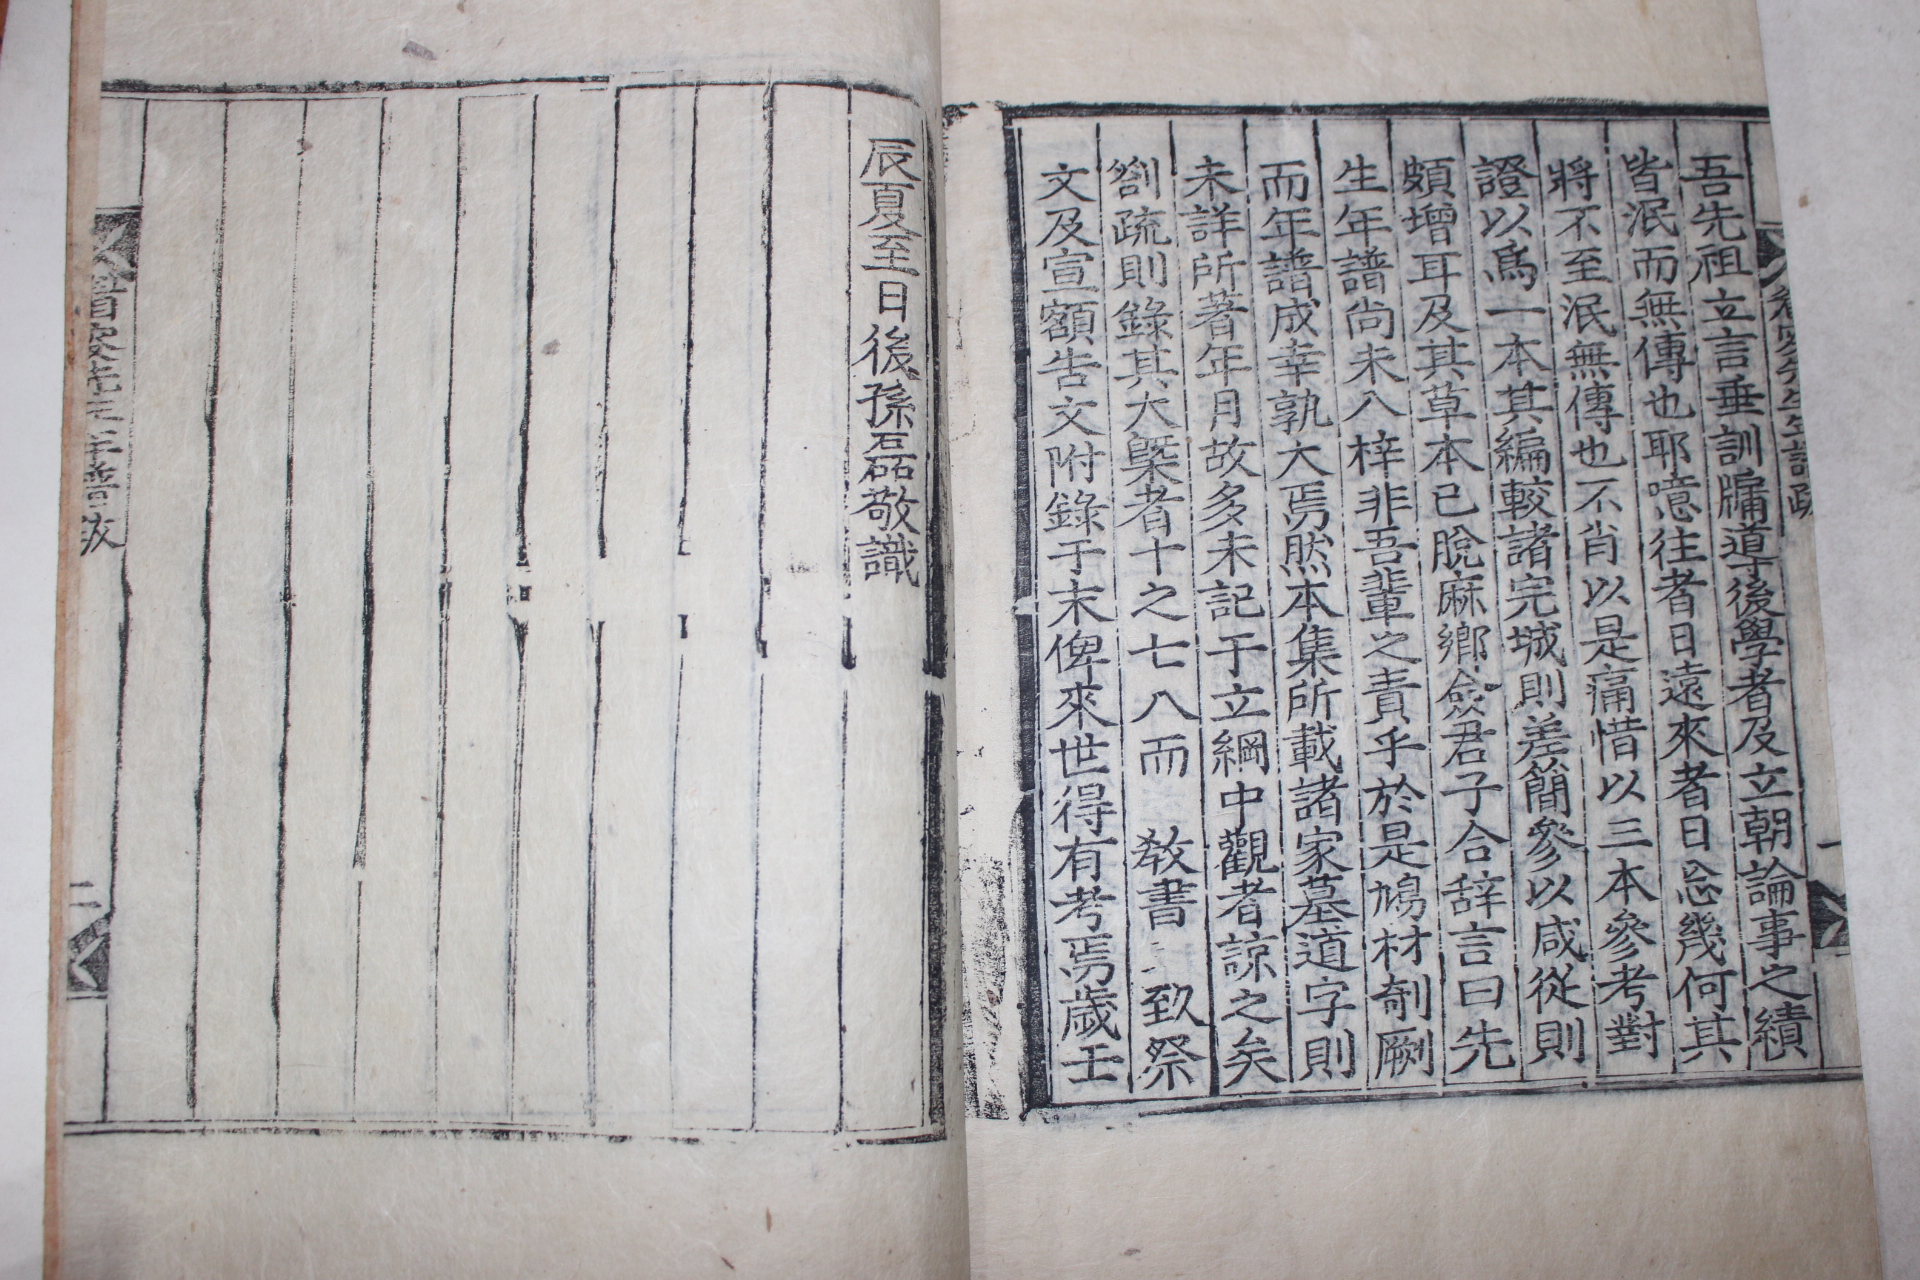 吾先祖立言垂訓牖導後學者及立朝論事之績
皆泯而無傳也耶噫往者日遠來者日忘幾何其
將不至泯無傳也不肖以是痛惜以三本參考對
證以爲一本其編較諸完城則差簡參以咸從則
頗增耳及其草本已脫麻鄉僉君子合辞言曰先
生年譜尚未入梓非吾輩之責乎於是鳩材剞劂
而年譜成幸孰大焉然本集所載諸家墓道字則
未詳所著年月故多未記于立綱中觀者諒之矣
劄疏則錄其大槩者十之七八而 敎書 致祭
文及宣額告文附錄于末俾來世得有考焉歲壬
辰夏至日後孫磊敬識
先生年譜跋
二